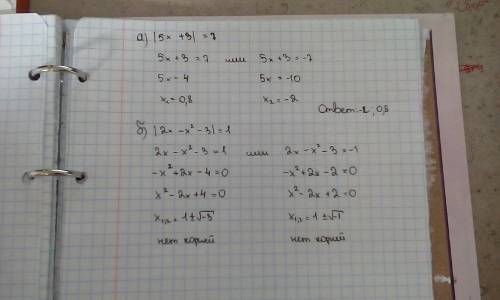 а) |5x +3| = 7
5x + 3 = 7 или 5x + 3 = -7
5x = 4 5x = -10
x₁ = 0,8 x₂ = -2
Ответ: -2; 0,8
б) |2x - x² - 3| = 1
2x - x² - 3 = 1 или 2x - x² - 3 = -1
-x² + 2x - 4 = 0 -x² + 2x - 2 = 0
x² - 2x + 4 = 0 x² - 2x + 2 = 0
x₁,₂ = 1 ± √-3 x₁,₂ = 1 ± √-1
нет корней нет корней